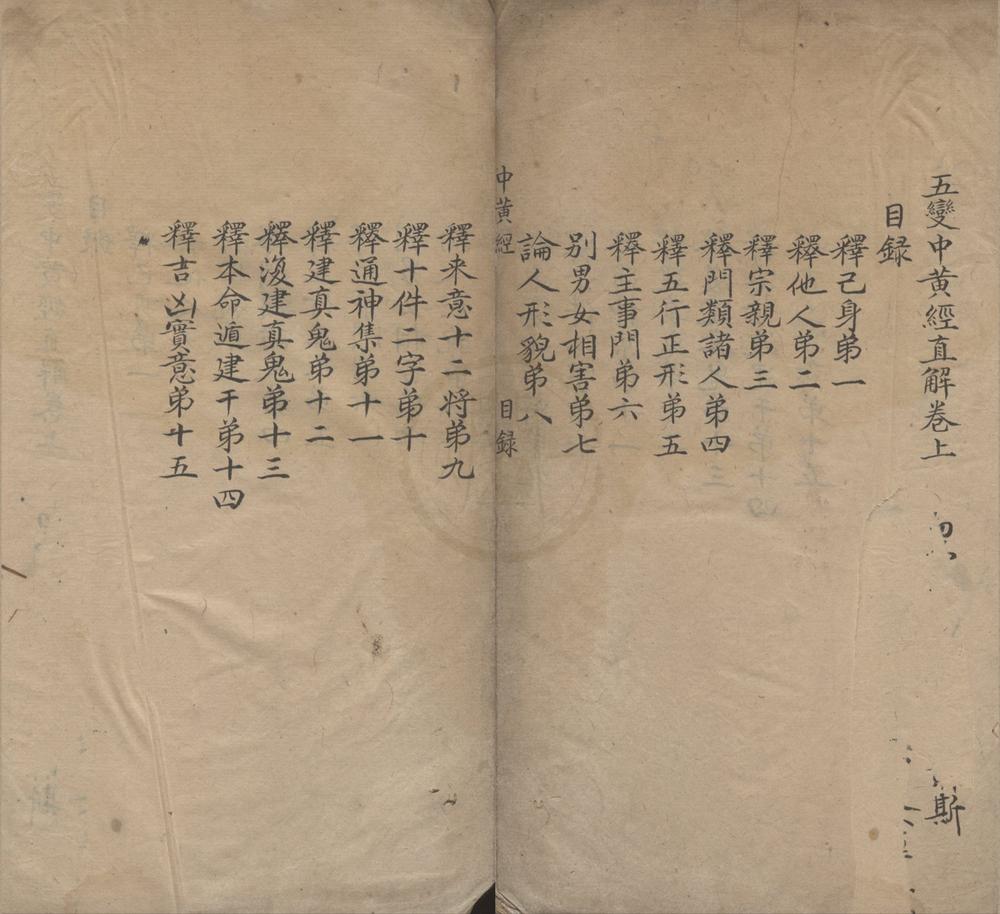 五變中黃經直解卷上
目録
釋己身弟一
釋他人弟二
釋宗親弟三
釋門類諸人弟四
釋五行正形弟五
釋主事門弟六
别男女相害弟七
論人形貌弟八
中黃經
目録
釋来意十二将弟九
釋十件二字弟十
釋通神集弟十一
釋建真鬼弟十二
釋復建真鬼弟十三
釋本命遁建干弟十四
釋吉凶實意弟十五
斯